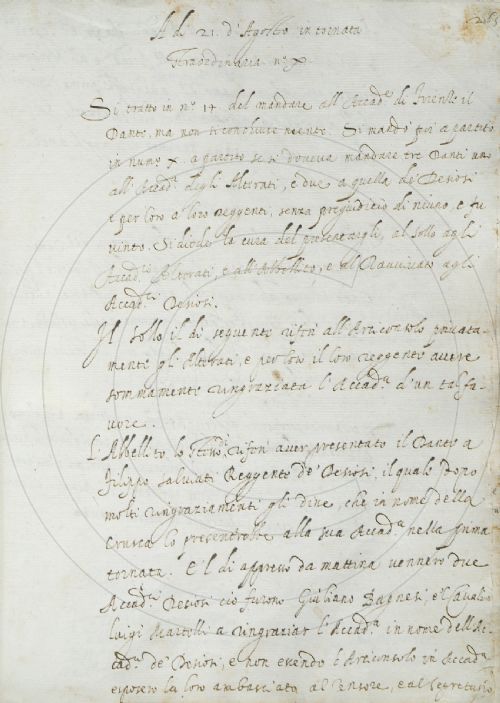 A dì 21. d'Agosto in tornata
straordinaria n.º X.
Si trattò in n.º 14 del mandare all'Accad.ª di Firenze il
Dante, ma non si concluse niente. Si mandò poi a partito
in num.º X. a partito se si doveva mandare tre Danti uno
all'Accad.ª degli Alterati, e due a quella de' Desiosi
e per loro a loro Reggenti, senza pregiudicio di niuno, e fu
vinto. Si diede la cura del presentargli, al sollo agli
Accad.ci Alterati, e all'Abbellito, e al Ravvivato agli
Accad.ci Desiosi.
Il Sollo il dì seguente riferì all'Arciconsolo privata-
mente gli Alterati, e per loro il loro Reggente avere
sommamente ringraziata l'Accad.ª d'un tal fa-
vore.
L'Abbellito lo riferì aver presentato il Dante a
Filippo Salviati Reggente de' Desiosi, il quale dopo
molti ringraziamenti gli disse, che in nome della
Crusca lo presenterebbe alla sua Accad.ª nella prima
tornata. E 'l dì appresso da mattina vennero due
Accad.ci Desiosi ciò furono Giuliano Bagnesi, e 'l Cavalier
Luigi Martelli a ringraziar l'Accad.ª in nome dell'Ac-
cad.ª de' Desiosi, e non essendo l'Arciconsolo in Accad.ª
esposero la loro ambasciata al Censore, e al Segretario